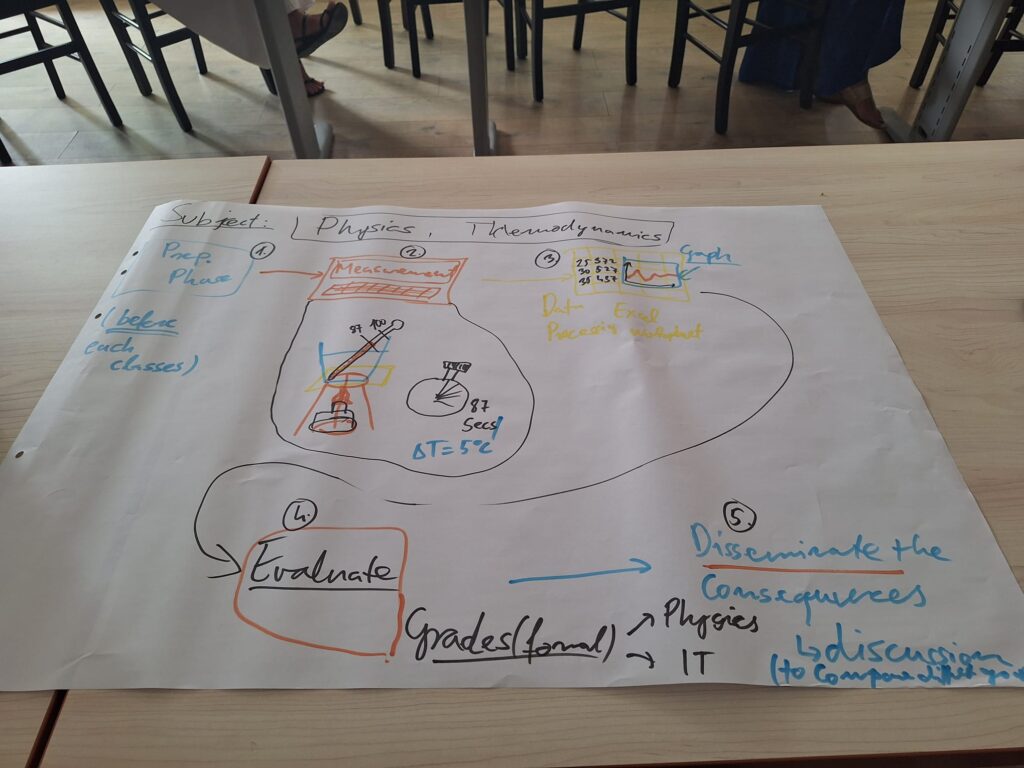 Subject: Physics, Thermodynamics
1.
Prep.
Phase
(before
each
classes)
2.
Measurement
87 100
87
Secs
ΔT=5°C
3.
25 372
30 527
35 437
Graph
Data Excel
Processing worksheet
4.
Evaluate
Grades (formal)
Physics
IT
5.
Disseminate the
Consequences
↳ discussion
(to compare